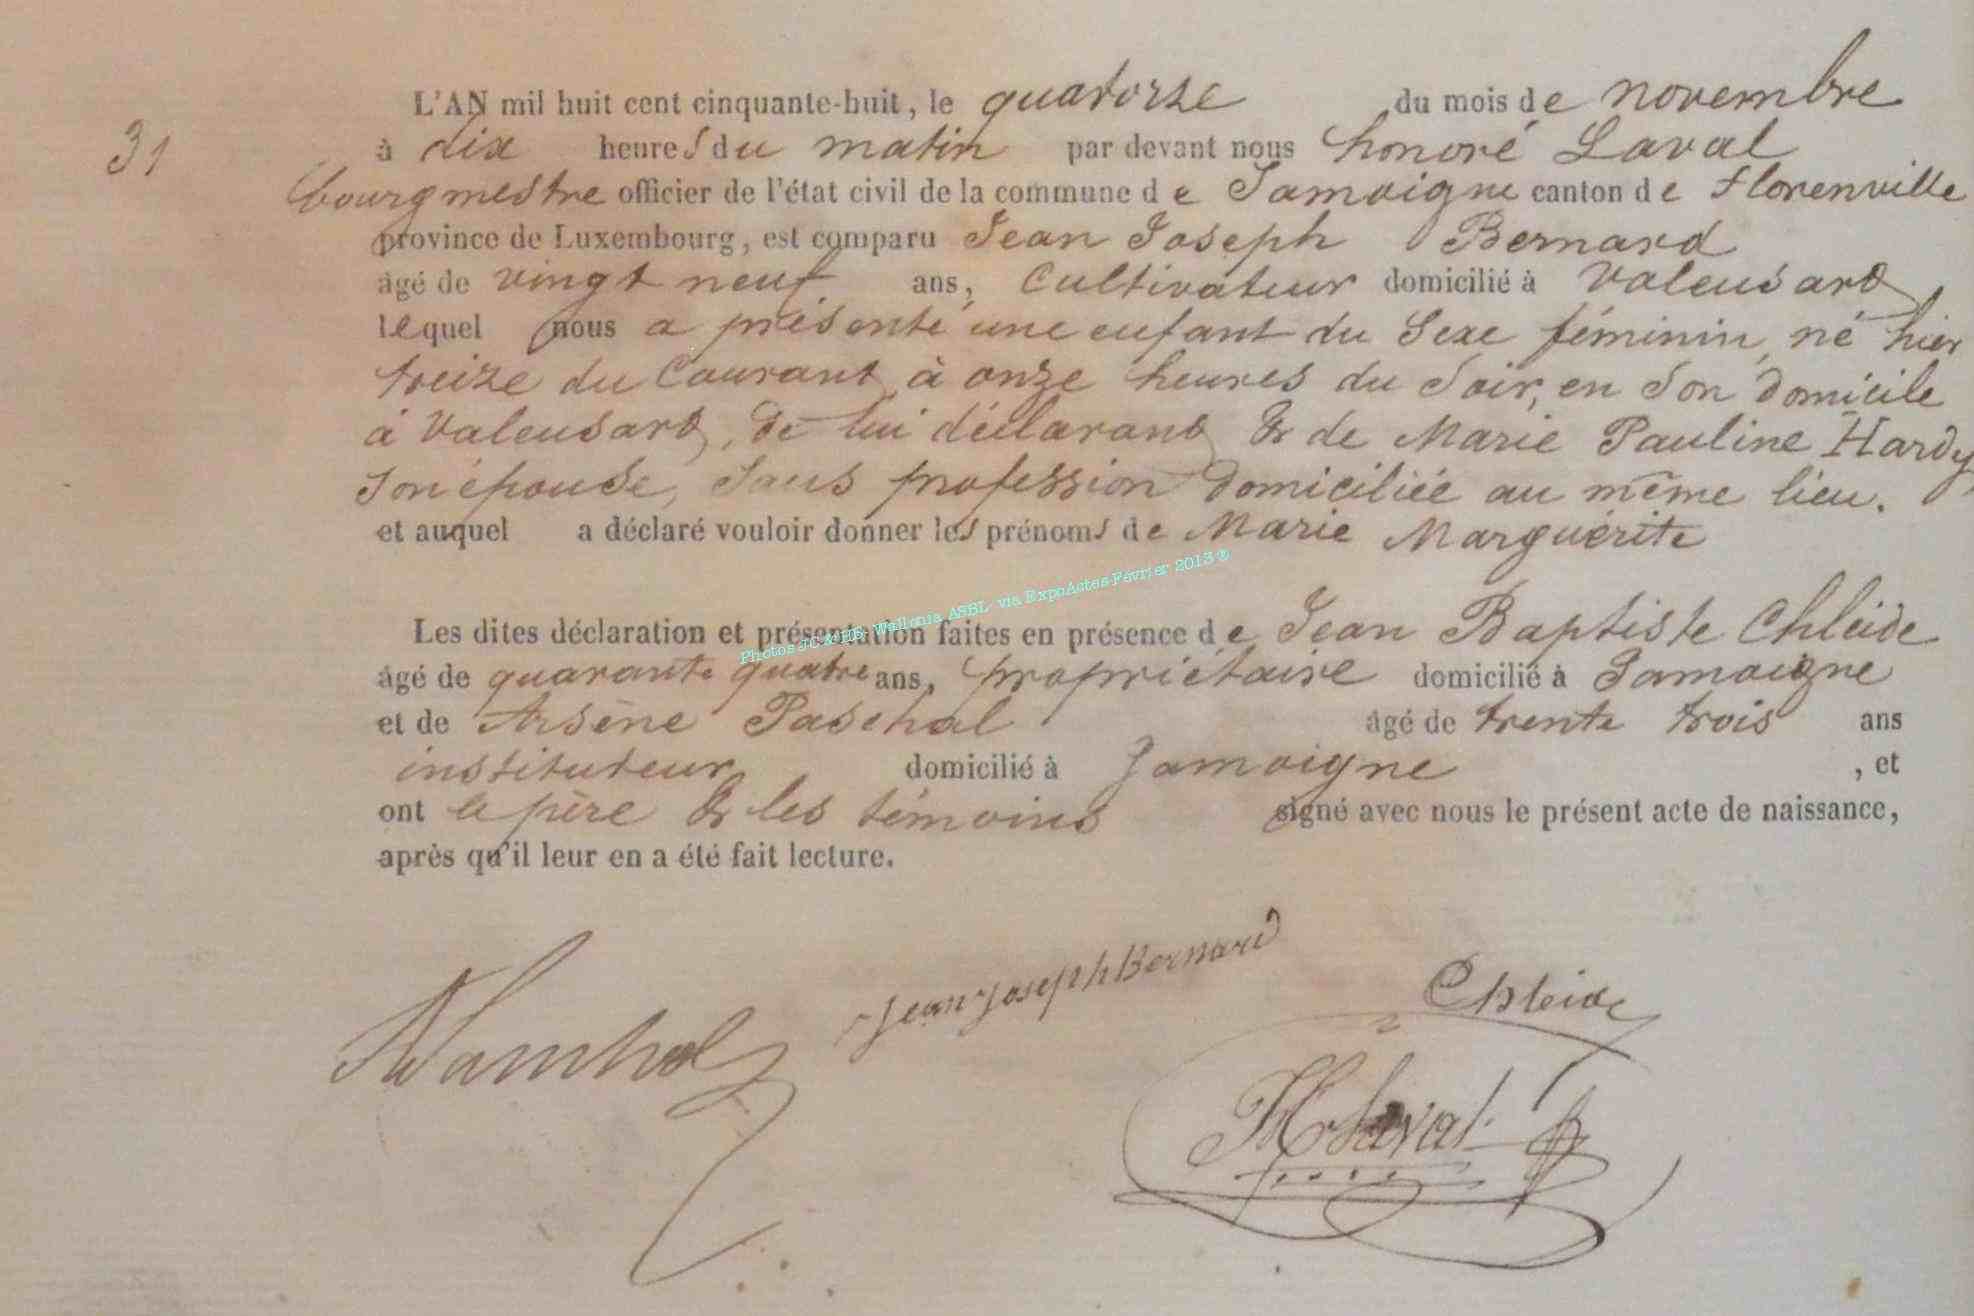 31
L'AN mil huit cent cinquante-huit, le quatorze du mois de novembre
à dix heures du matin par devant nous honoré Laval
bourgmestre officier de l'état civil de la commune de Jamoigne canton de Florenville
province de Luxembourg, est comparu Jean Joseph Bernard
âgé de vingt neuf ans, Cultivateur domicilié à Valensart
lequel nous a présenté une enfant du Sexe féminin, né hier
treize du Courant, à onze heures du Soir, en Son domicile
à Valensart, de lui déclarant & de Marie Pauline Hardy
Son épouse, Sans profession domiciliée au même lieu.
et auquel a déclaré vouloir donner les prénoms de Marie Marguérite
Photos JC & HB Wallonia ASBL via ExpoActes Février 2013 ®
Les dites déclaration et présentation faites en présence de Jean Baptiste Chleide
âgé de quarante quatre ans, propriétaire domicilié à Jamoigne
et de Arsène Paschal âgé de trente trois ans
instituteur domicilié à Jamoigne, et
ont le père & les témoins signé avec nous le présent acte de naissance,
après qu'il leur en a été fait lecture.
Jean Joseph Bernard
Chleide
H Laval